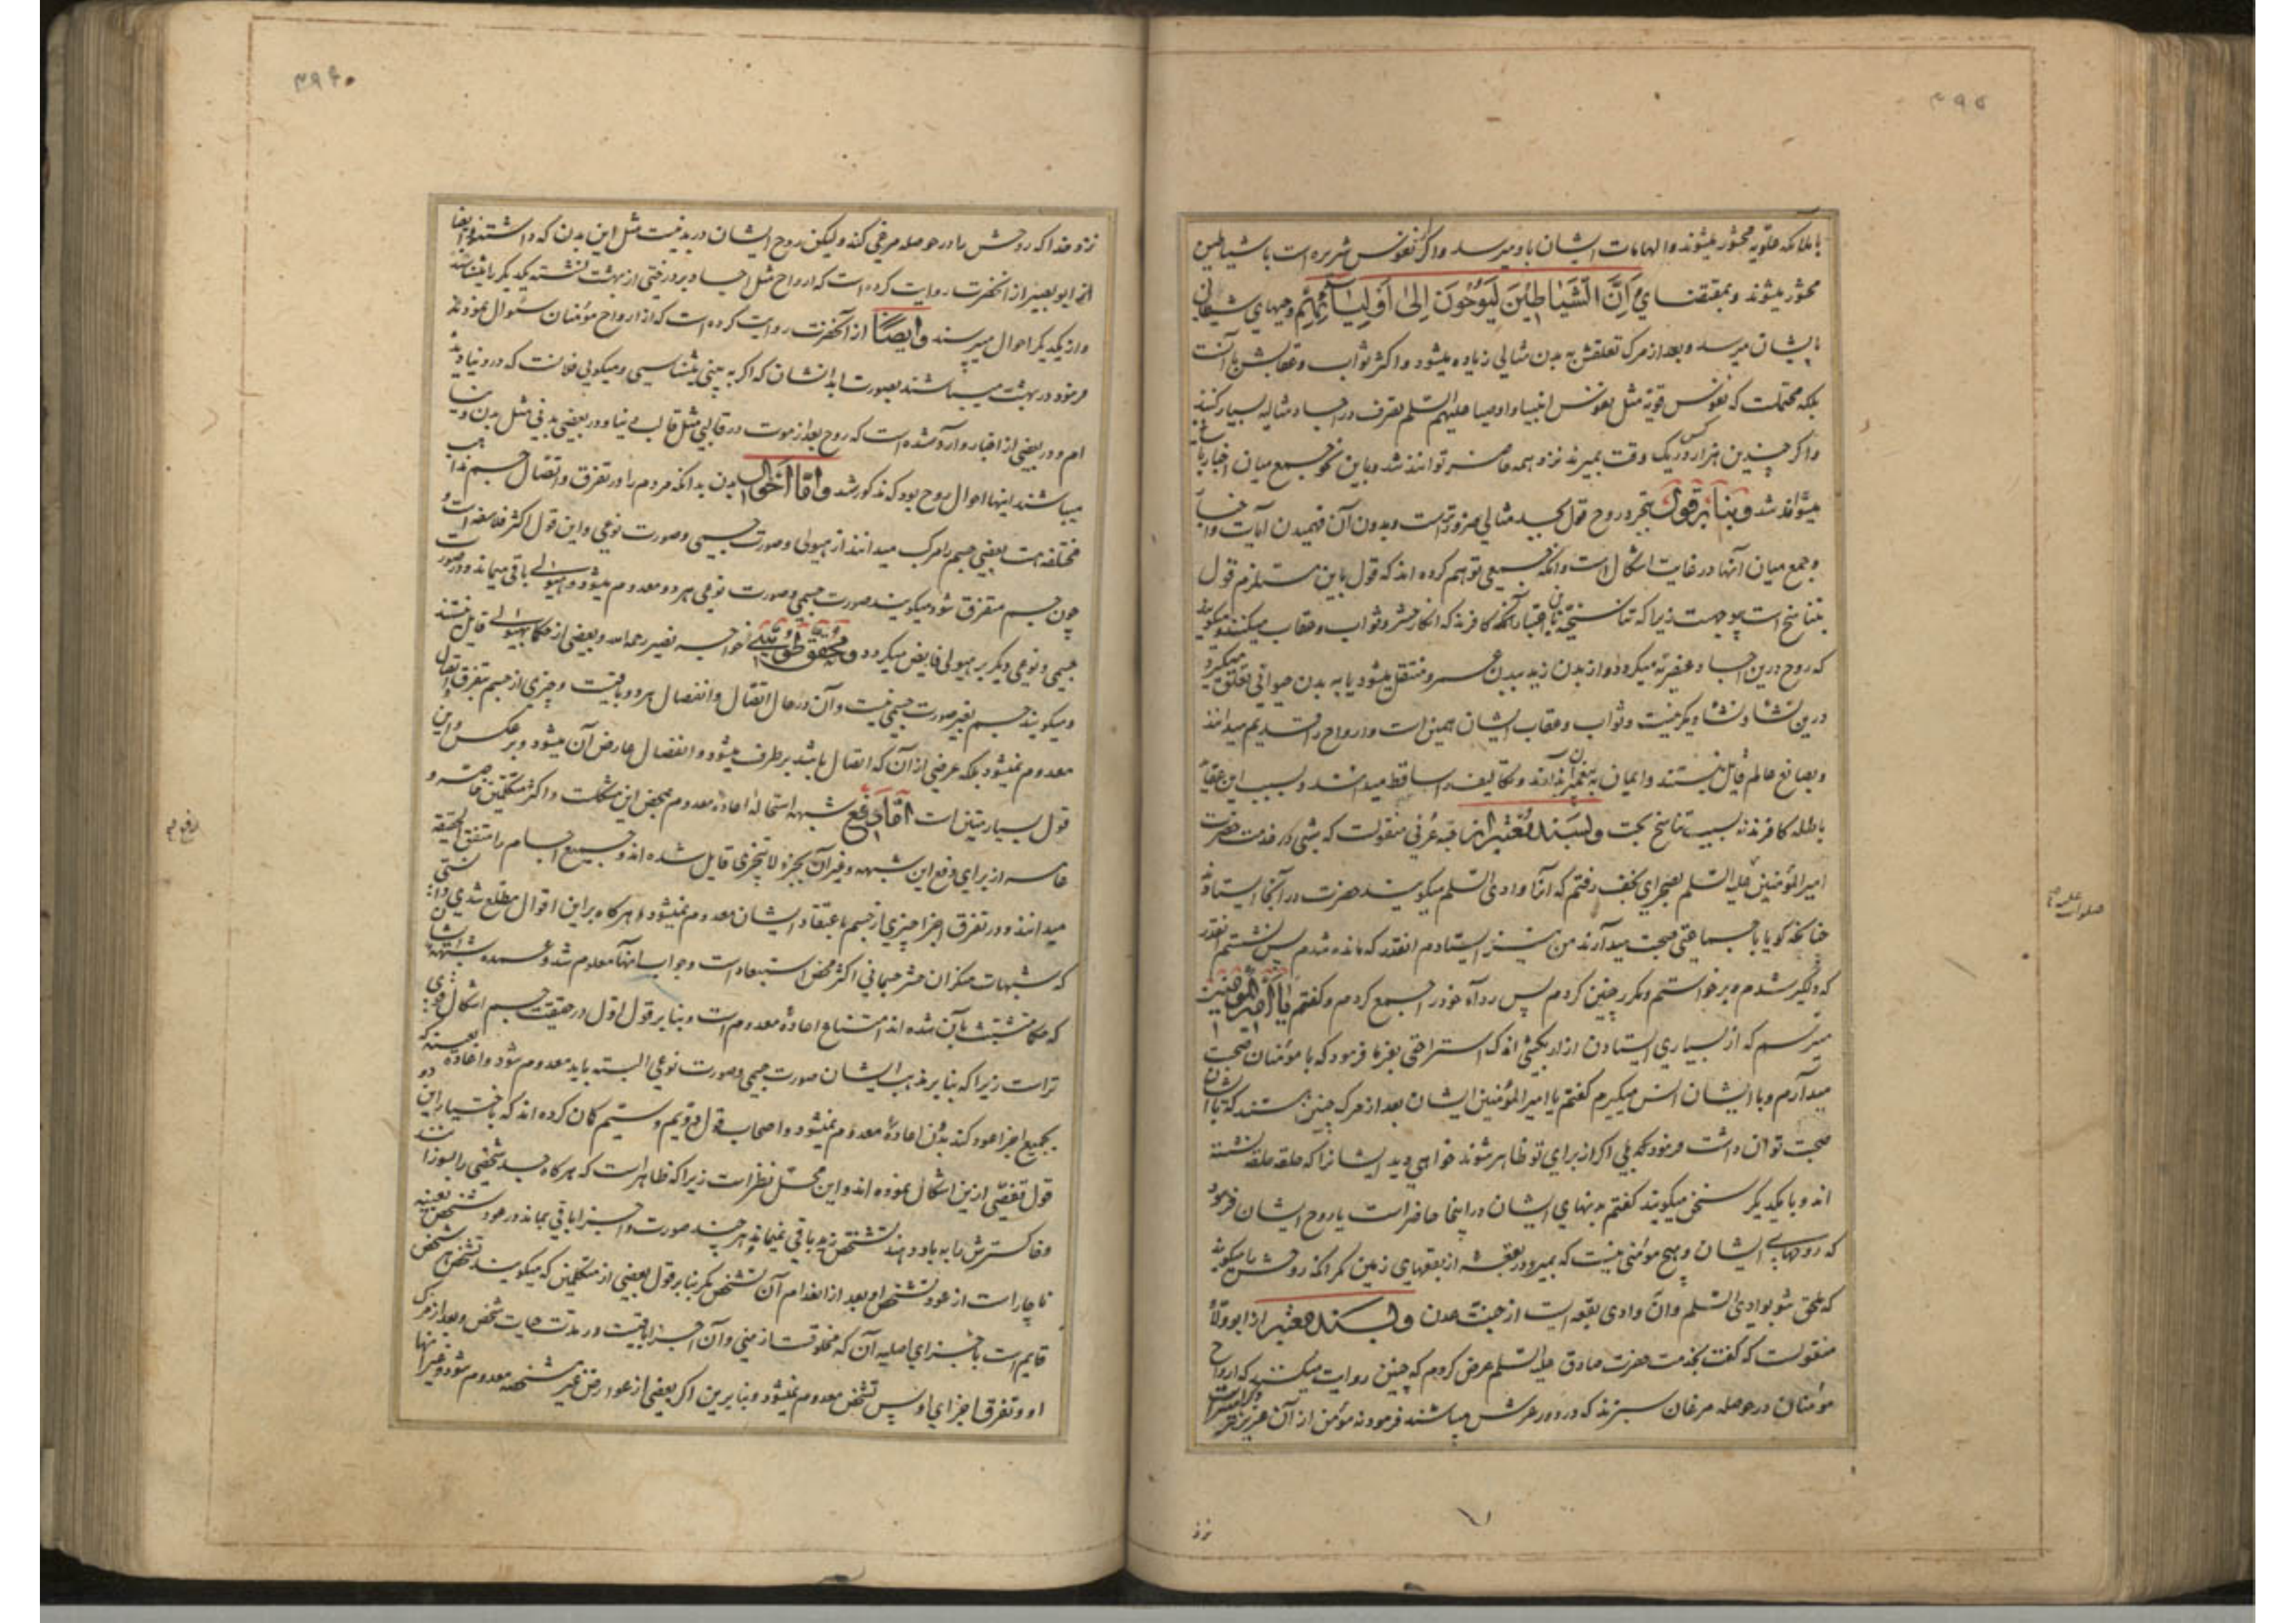 ۳۹۵
با ملائکه علویه محشور میشوند و الهامات ایشان باو میرسد و اگر نفوس شریره است با شیاطین
محشور میشوند و بمقتضای وَاِنَّ الشَّیَاطِینَ لَیُوحُونَ اِلیٰ اَوْلِیَائِهِمْ وحیهای شیطانی
بایشان میرسد و بعد از مرگ تعلقش به بدن مثالی زیاده میشود و اکثر ثواب و عقابش بآنست
بلکه محتملست که نفوس قویّه مثل نفوس انبیا و اوصیا علیهم السّلم تصرف در اجساد مثالیه بسیار کنند
و اگر چندین هزار کس در یک وقت بمیرند نزد همه حاضر توانند شد و باین نحو جمع میان اخبار
میتواند شد و بنا بر قول بتجرد روح قول بجسد مثالی ضرور تراست و بدون آن فهمیدن آیات و اخبار
و جمع میان آنها در غایت اشکال است و آنکه جمعی توهم کرده اند که قول باین مستلزم قول
بتناسخ است بیوجهست زیرا که تناسخیّه باعتبار آن کافرند که انکار حشر و ثواب و عقاب میکنند و میگویند
که روح درین اجساد عنصریّه میگردد و از بدن زید ببدن عمرو منتقل میشود یا به بدن حیوانی تعلق میگیرد
درین نشأه و نشأه دیگر نیست و ثواب و عقاب ایشان همین است و ارواح را قدیم میدانند
و بصانع عالم قایل نیستند و ایمان به پیغمبران ندارند و تکالیف را ساقط میدانند و بسبب این عقاید
باطله کافرند نه بسبب تناسخ بحت و بسند معتبر از حبه عرنی منقولست که شبی در خدمت حضرت
امیر المؤمنین علیه السّلم بصحرای نجف رفتم که آنرا وادی السّلم میگویند حضرت در آنجا ایستادند
چنانکه گویا با جماعتی صحبت میدارند من نیز ایستادم آنقدر که مانده شدم پس نشستم آنقدر
که دلگیر شدم و برخواستم و مکرر چنین کردم پس ردآء خود را جمع کردم و گفتم یا امیر المؤمنین
میترسم که از بسیاری ایستادن آزار بکشی اندک استراحتی بفرما فرمود که با مؤمنان صحبت
میدارم و با ایشان انس میگیرم گفتم یا امیر المؤمنین ایشان بعد از مرگ چنین هستند که با ایشان
صحبت توان داشت فرمود که بلی اگر از برای تو ظاهر شوند خواهی دید ایشانرا که حلقه حلقه نشسته
اند و با یکدیگر سخن میگویند گفتم بدنهای ایشان در اینجا حاضر است یا روح ایشان فرمود
که روحهای ایشان و هیچ مؤمنی نیست که بمیرد در بقعه از بقعهای زمین مگر آنکه روحش را میگویند
که ملحق شو بوادی السّلم و آن وادی بقعه ایست از جنت عدن و بسند معتبر از ابو ولّاد
منقولست که گفت بخدمت حضرت صادق علیه السّلم عرض کردم که چنین روایت میکنند که ارواح
مؤمنان در حوصله مرغان سبزند که در دور عرش میباشند فرمود نه مؤمن از آن عزیزتر
نزد
۳۹۶
نزد خدا که روحش را در حوصله مرغی کند ولیکن روح ایشان در بدنیست مثل این بدن که داشتند و ایضا
ابو بصیر از آنحضرت روایت کرده است که ارواح مثل اجساد بر درختی از بهشت نشسته یکدیگر را میشناسند
و از یکدیگر احوال میپرسند و ایضًا از آنحضرت روایت کرده است که از ارواح مؤمنان سئوال نمودند
فرمود در بهشت میباشند بصورت ابدانشان که اگر به بینی بشناسی و میگویی فلانست که در دنیا دیده
ام و در بعضی از اخبار وارد شده است که روح بعد از موت در قالبی مثل قالب دنیا و در بعضی بدنی مثل بدن دنیا
میباشند اینها احوال روح بود که مذکور شد و امّا احوال بدن بدانکه مردم را در تفرق و اتصال جسم مذاهب
مختلفه است بعضی جسم را مرکب میدانند از هیولی و صورت جسمی و صورت نوعی و این قول اکثر فلاسفه است و
چون جسم متفرق شود میگویند صورت جسمی و صورت نوعی هر دو معدوم میشود و هیولی باقی میماند و صورت
جسمی و نوعی دیگر بر هیولی فایض میگردد و محقق طوسی خواجه نصیر رحمه الله و بعضی از حکما بهیولی قایل نیستند
و میگویند جسم بغیر صورت جسمی نیست و آن در حال اتصال و انفصال هر دو باقیست و چیزی از جسم بتفرق و اتصال
معدوم نمیشود بلکه عرضی از آن که اتصال باشد برطرف میشود و انفصال عارض آن میشود و بر عکس و این
قول بسیار متین است امّا دفع شبهه استحالهٔ اعادهٔ معدوم بمحض این مشکلست و اکثر متکلمین خاصه و
عامه از برای دفع این شبهه و غیر آن بجزء لا یتجزی قایل شده اند و جمیع اجسام را متفق الحقیقه
میدانند و در تفرق اجزا چیزی از جسم باعتقاد ایشان معدوم نمیشود و هرگاه بر این اقوال مطلع شدی دانستی
که شبهات منکران حشر جسمانی اکثر محض استبعاد است و جواب آنها معلوم شد و عمده شبهه ایشان
که حکما متشبث بآن شده اند امتناع اعادهٔ معدوم است و بنا بر قول اول در حقیقت جسم اشکال قوی
تر است زیرا که بنا بر مذهب ایشان صورت جسمی و صورت نوعی البته باید معدوم شود و اعاده بعینه که
بجمیع اجزا عود کند بدون اعادهٔ معدوم نمیشود و اصحاب قول دویم و سیم گمان کرده اند که باختیار این دو
قول تفصّی ازین اشکال نموده اند و این محل نظر است زیرا که ظاهر است که هرگاه جسد شخصی را بسوزانند
و خاکسترش را بباد دهند تشخص زید باقی نمیماند و هرچند صورت و اجزا باقی بماند در عود شخص بعینه
ناچار است از عود تشخص او بعد از انعدام آن تشخص مگر بنا بر قول بعضی از متکلمین که میگویند تشخص هر شخص
قایم است باجزای اصلیه آن که مخلوقست از منی و آن اجزا باقیست در مدت حیات شخص و بعد از مرگ
او و تفرق اجزای او پس تشخص معدوم نمیشود و بنا برین اگر بعضی از عوارض غیر مشخصه معدوم شود و غیر آنها